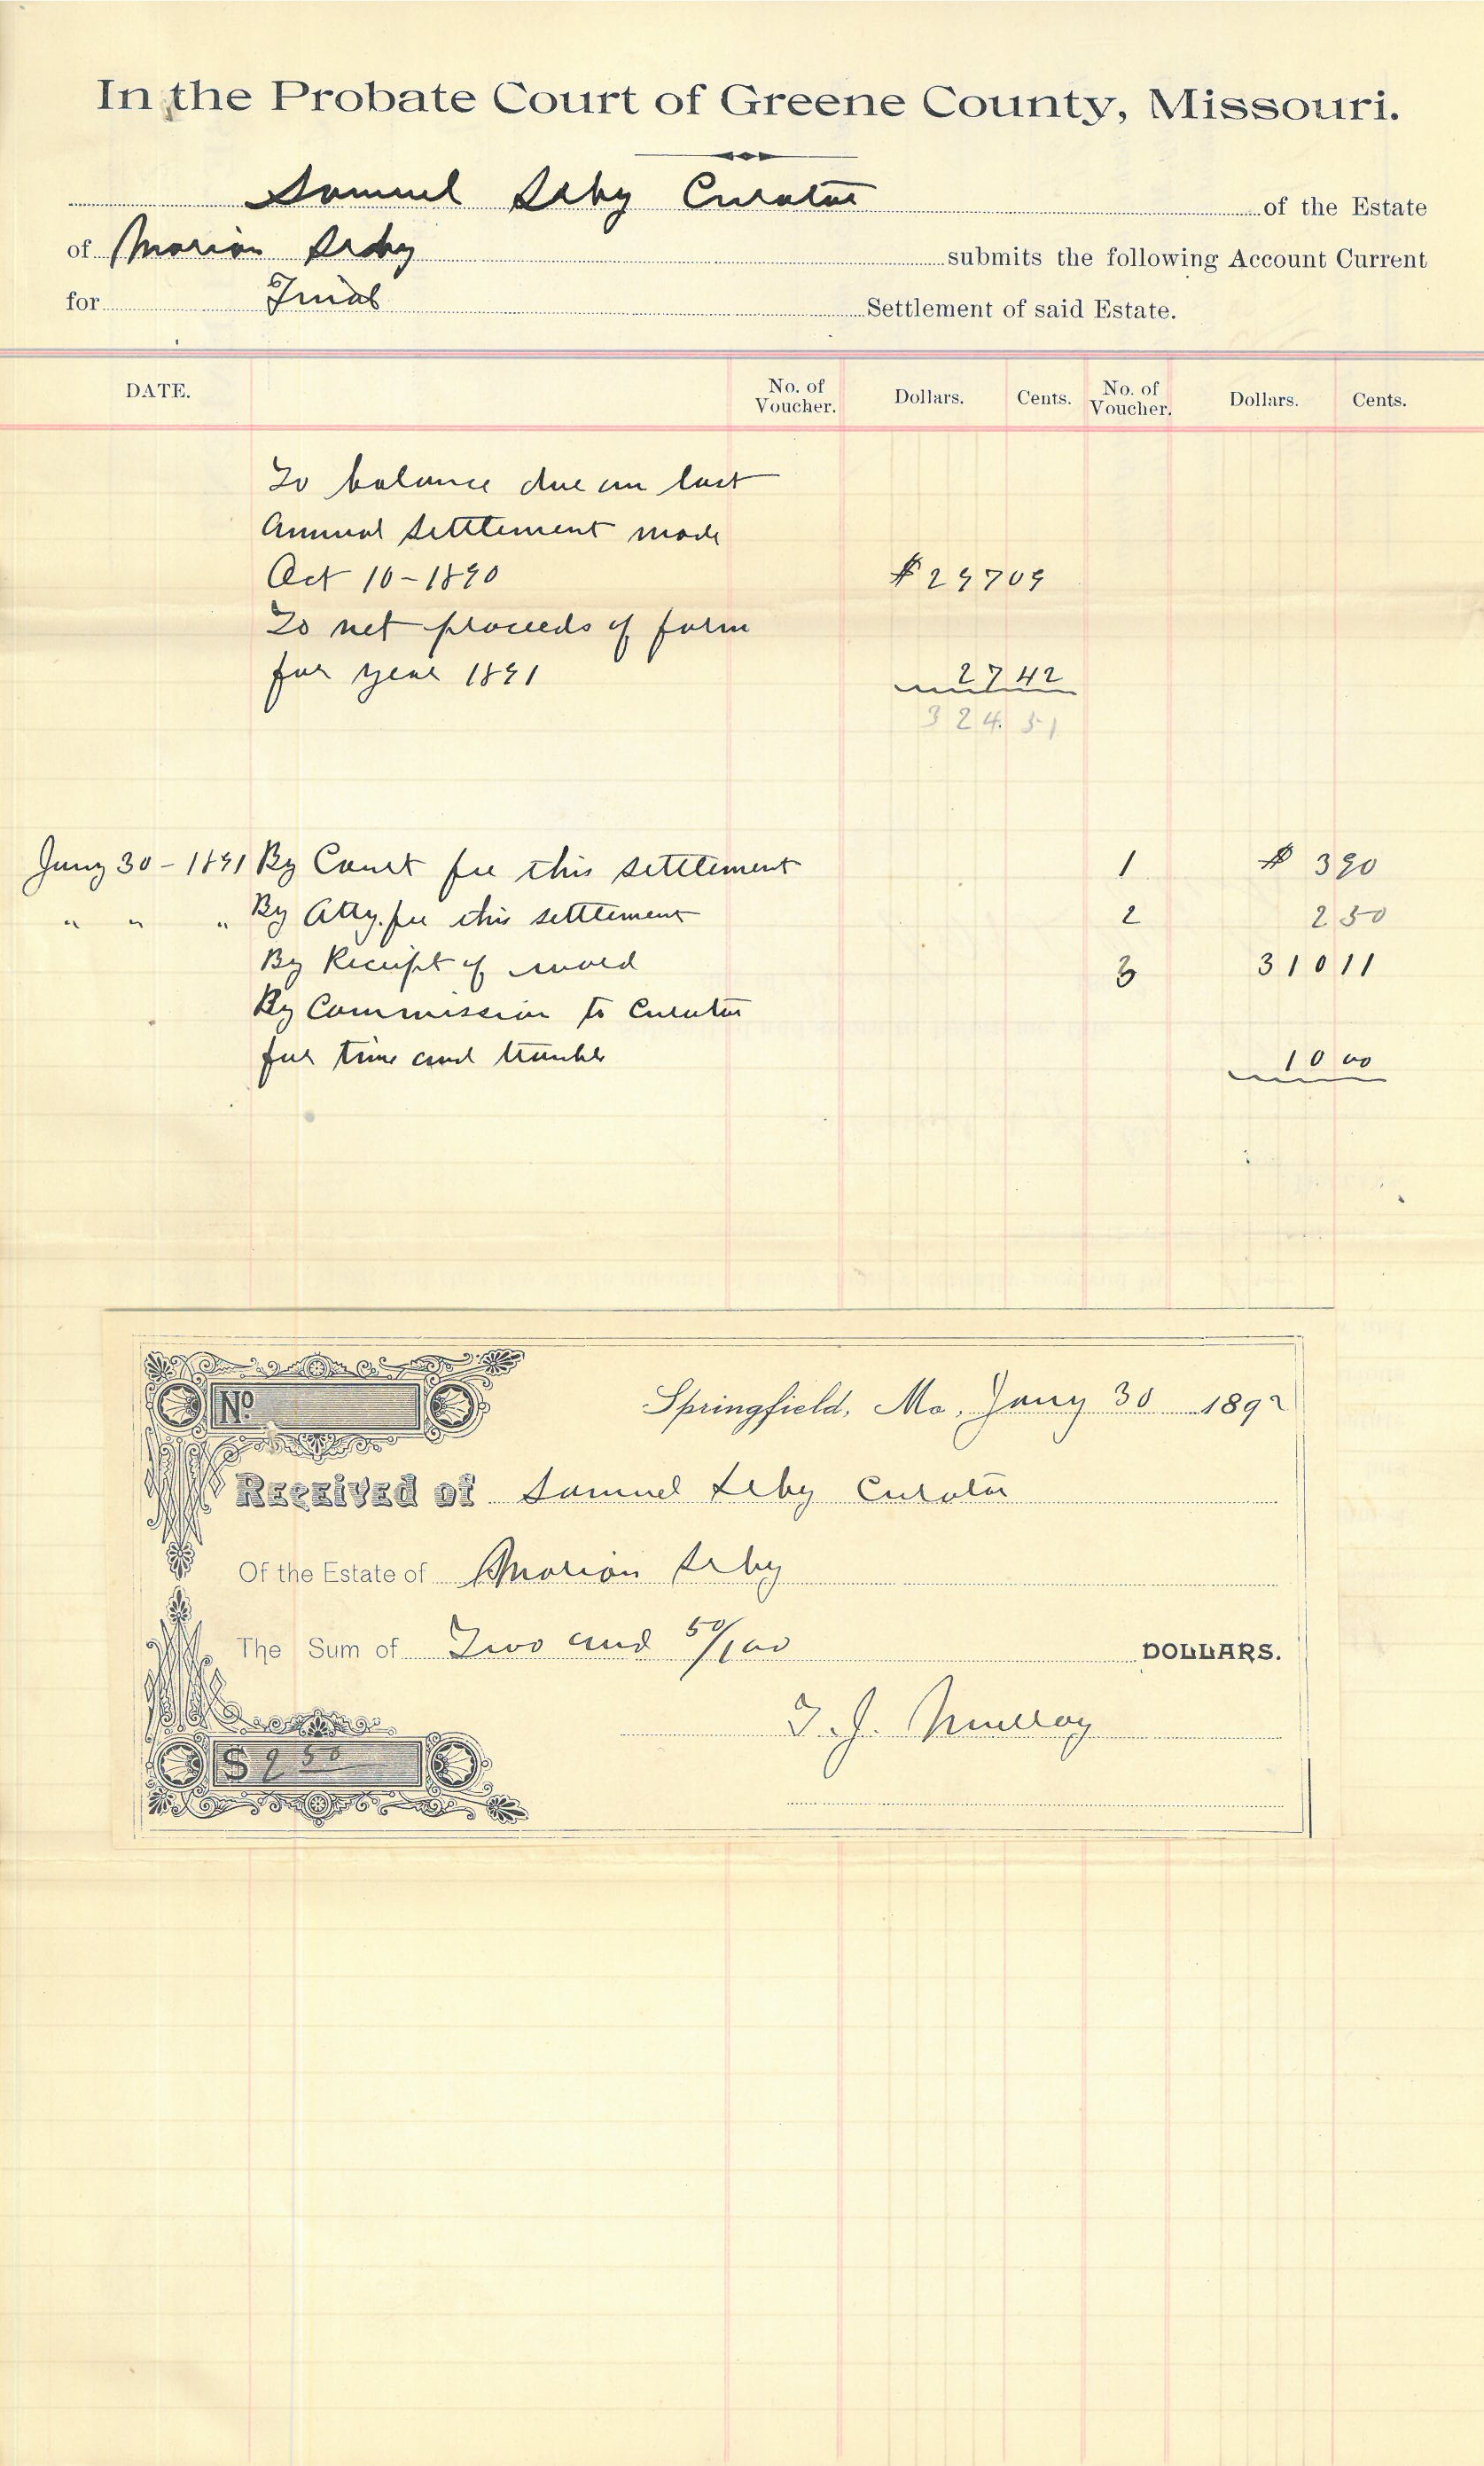 In the Probate Court of Greene County, Missouri.
Samuel Seby Curator of the Estate
of Marion Seby submits the following Account Current
for Final Settlement of said Estate.
DATE. No. of Voucher. Dollars. Cents. No. of Voucher. Dollars. Cents.
To balance due on last
Annual settlement made
Oct 10-1890 $29709
To net proceeds of farm
for year 1891 2742
324.51
Jany 30-1891 By Court fee this settlement 1 $ 390
" " " By Atty. fee this settlement 2 250
By Receipt of ward 3 31011
By Commission to Curator
for time and trouble 1000
No
Springfield, Mo, Jany 30 1892
Received of Samuel Seby Curator
Of the Estate of Marion Seby
The Sum of Two and 50/100 DOLLARS.
T. J.
$ 2 50